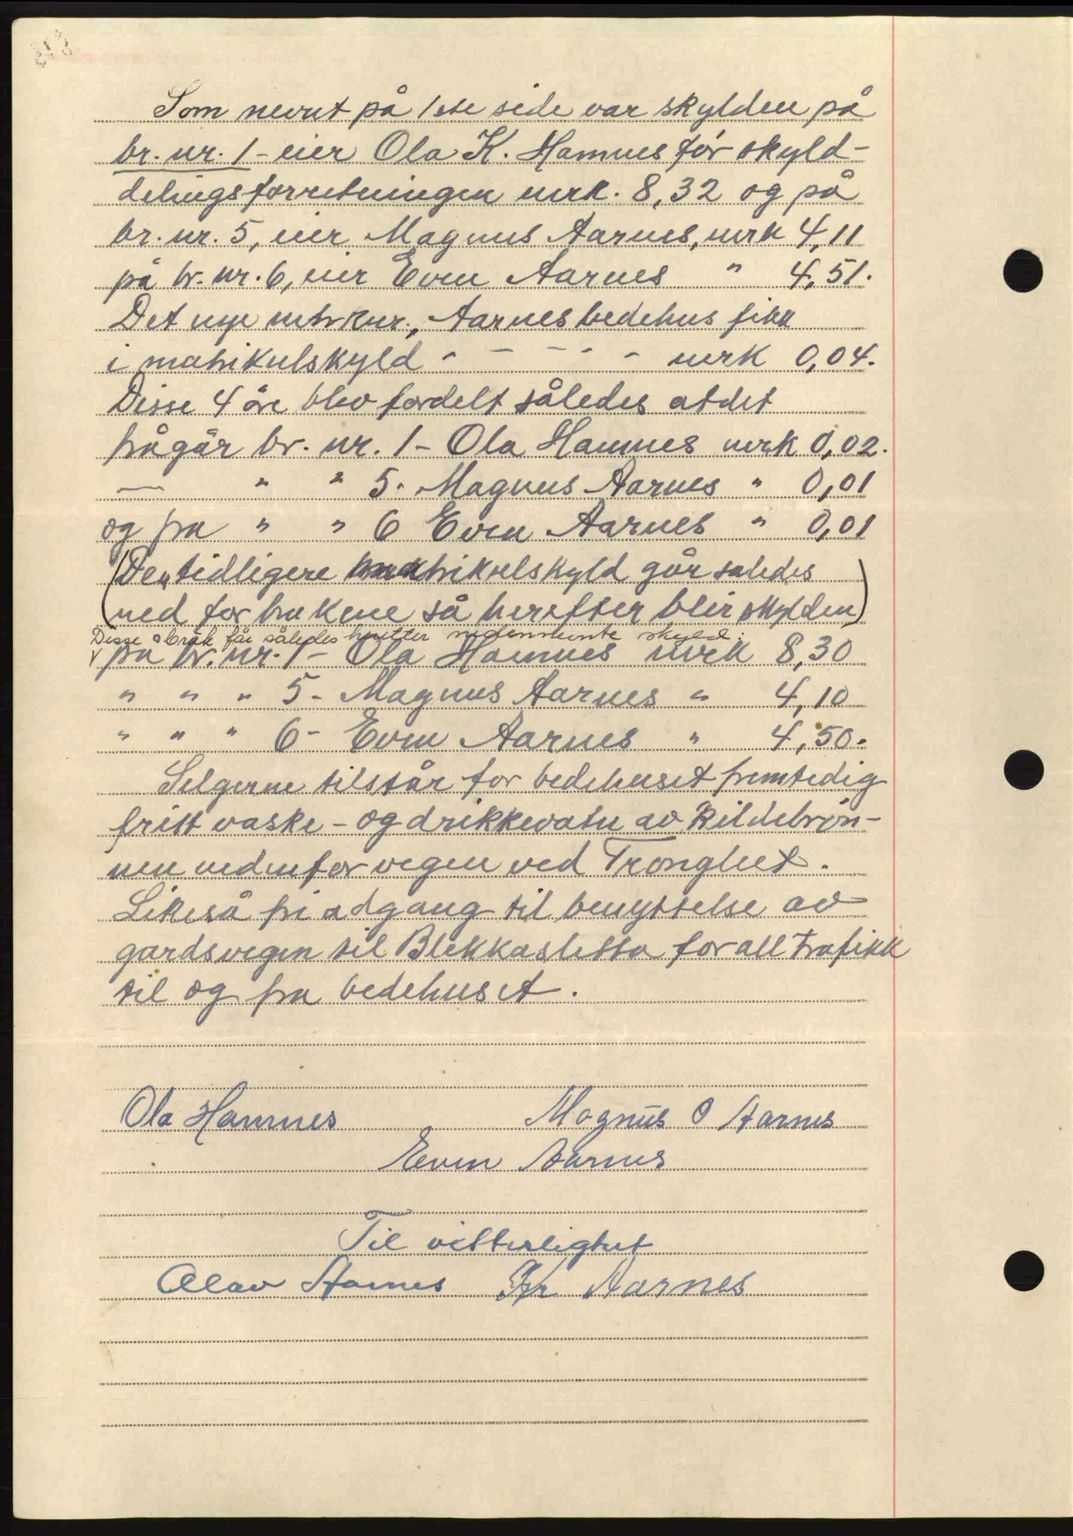 Som nevnt på 1ste side var skylden på
br. nr. 1 - eier Ola K. Hamnes før skyld-
delingsforretningen mrk. 8,32 og på
br. nr. 5, eier Magnus Aarnes, mrk 4,11
på br. nr. 6, eier Even Aarnes " 4,51.
Det nye matrknr., Aarnes bedehus fikk
i matrikulskyld - - - - - mrk 0,04.
Disse 4 øre blev fordelt således at det
frågår br. nr. 1 - Ola Hamnes mrk 0,02.
— " " 5. Magnus Aarnes " 0,01
og fra " " 6 Even Aarnes " 0,01
(Den tidligere matrikulskyld går således
ned for brukene så herefter blir skylden)
Disse 3 bruk får således herefter nedennevnte skyld:
på br. nr. 1 - Ola Hamnes mrk 8,30
" " " 5 - Magnus Aarnes " 4,10
" " " 6 - Even Aarnes " 4,50.
Selgerne tilstår for bedehuset fremtidig
fritt vaske- og drikkevatn av kildebrøn-
nen nedenfor vegen ved Trongleet.
Likeså fri adgang til benyttelse av
gardsvegen til Blekkasletta for all trafikk
til og fra bedehuset.
Ola Hamnes Magnus O Aarnes
Even Aarnes
Til vitterlighet
Olav Aarnes Kr Aarnes